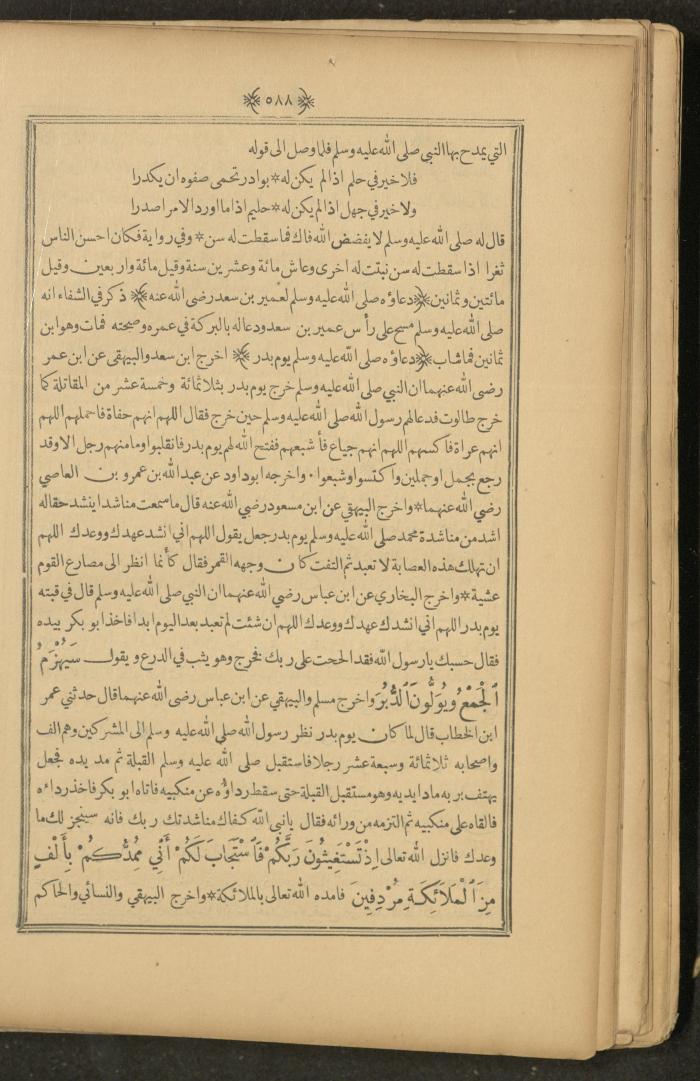 ﴿٥٨٨﴾
التي يمدح بها النبي صلى الله عليه وسلم فلما وصل الى قوله
فلا خير في حلم اذا لم يكن له * بوادر تحمى صفوه ان يكدرا
ولا خير في جهل اذا لم يكن له * حليم اذا ما اورد الامر اصدرا
قال له صلى الله عليه وسلم لا يفضض الله فاك فما سقطت له سن * وفي رواية فكان احسن الناس
ثغرا اذا سقطت له سن نبتت له اخرى وعاش مائة وعشرين سنة وقيل مائة واربعين وقيل
مائتين وثمانين ﴿دعاؤه صلى الله عليه وسلم لعمير بن سعد رضى الله عنه﴾ ذكر في الشفاء انه
صلى الله عليه وسلم مسح على رأس عمير بن سعد ودعا له بالبركة في عمره وصحته فمات وهو ابن
ثمانين فما شاب ﴿دعاؤه صلى الله عليه وسلم يوم بدر﴾ اخرج ابن سعد والبيهقى عن ابن عمر
رضى الله عنهما ان النبي صلى الله عليه وسلم خرج يوم بدر بثلاثمائة وخمسة عشر من المقاتلة كما
خرج طالوت فدعا لهم رسول الله صلى الله عليه وسلم حين خرج فقال اللهم انهم حفاة فاحملهم اللهم
انهم عراة فاكسهم اللهم انهم جياع فأشبعهم ففتح الله لهم يوم بدر فانقلبوا وما منهم رجل الا وقد
رجع بجمل او جملين واكتسوا وشبعوا . واخرجه ابو داود عن عبد الله بن عمرو بن العاصي
رضي الله عنهما * واخرج البيهقي عن ابن مسعود رضي الله عنه قال ما سمعت مناشدا ينشد حقا له
اشد من مناشدة محمد صلى الله عليه وسلم يوم بدر جعل يقول اللهم اني انشد عهدك ووعدك اللهم
ان تهلك هذه العصابة لا تعبد ثم التفت كان وجهه القمر فقال كأنما انظر الى مصارع القوم
عشية * واخرج البخاري عن ابن عباس رضي الله عنهما ان النبي صلى الله عليه وسلم قال في قبته
يوم بدر اللهم اني انشدك عهدك ووعدك اللهم ان شئت لم تعبد بعد اليوم ابدا فاخذ ابو بكر بيده
فقال حسبك يا رسول الله فقد الححت على ربك فخرج وهو يثب في الدرع ويقول سَيُهْزَمُ
ٱلْجَمْعُ وَيُوَلُّونَ ٱلدُّبُرَ واخرج مسلم والبيهقي عن ابن عباس رضى الله عنهما قال حدثني عمر
ابن الخطاب قال لما كان يوم بدر نظر رسول الله صلى الله عليه وسلم الى المشركين وهم الف
واصحابه ثلاثمائة وسبعة عشر رجلا فاستقبل صلى الله عليه وسلم القبلة ثم مد يده فجعل
يهتف بربه مادا يديه وهو مستقبل القبلة حتى سقط رداؤه عن منكبيه فاتاه ابو بكر فاخذ رداءه
فالقاه على منكبيه ثم التزمه من ورائه فقال يا نبي الله كفاك مناشدتك ربك فانه سينجز لك ما
وعدك فانزل الله تعالى إِذْ تَسْتَغِيثُونَ رَبَّكُمْ فَٱسْتَجَابَ لَكُمْ أَنِّي مُمِدُّكُمْ بِأَلْفٍ
مِنَ ٱلْمَلَائِكَةِ مُرْدِفِينَ فامده الله تعالى بالملائكة * واخرج البيهقي والنسائي والحاكم